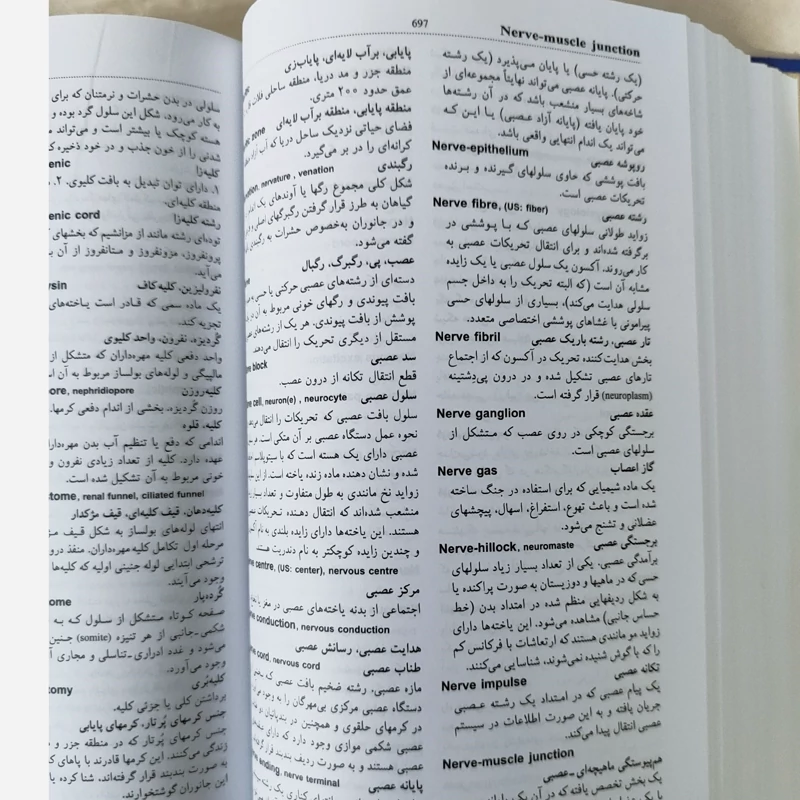 697
Nerve-muscle junction
(یک رشته حسی) یا پایان می‌پذیرد (یک رشته
حرکتی). پایانه عصبی می‌تواند نهایتاً مجموعه‌ای از
شاخه‌های بسیار منشعب باشد که در آن رشته‌ها
خود پایان یافته (پایانه آزاد عصبی) یا این که
می‌تواند یک اندام انتهایی واقعی باشد.
Nerve-epithelium
روپوشه عصبی
بافت پوششی که حاوی سلولهای گیرنده و برنده
تحریکات عصبی است.
Nerve fibre, (US: fiber)
رشته عصبی
زواید طولانی سلولهای عصبی که با پوششی در
برگرفته شده‌اند و برای انتقال تحریکات عصبی به
کار می‌روند. آکسون یک سلول عصبی یا یک زایده
مشابه آن است (که البته تحریک را به داخل جسم
سلولی هدایت می‌کند)، بسیاری از سلولهای حسی
پیرامونی با غشاهای پوششی اختصاصی متعدد.
Nerve fibril
تار عصبی، رشته باریک عصبی
بخش هدایت‌کننده تحریک در آکسون که از اجتماع
تارهای عصبی تشکیل شده و در درون پی‌دشتینه
(neuroplasm) قرار گرفته است.
Nerve ganglion
عقده عصبی
برجستگی کوچکی در روی عصب که متشکل از
سلولهای عصبی است.
Nerve gas
گاز اعصاب
یک ماده شیمیایی که برای استفاده در جنگ ساخته
شده است و باعث تهوع، استفراغ، اسهال، پیچشهای
عضلانی و تشنج می‌شود.
Nerve-hillock, neuromaste
برجستگی عصبی
برآمدگی عصبی. یکی از تعداد بسیار زیاد سلولهای
حسی که در ماهیها و دوزیستان به صورت پراکنده یا
به شکل ردیفهایی منظم شده در امتداد بدن (خط
حساس جانبی) مشاهده می‌شود. این یاخته‌ها دارای
زواید مو مانندی هستند که ارتعاشات با فرکانس کم
را که با گوش شنیده نمی‌شوند، شناسایی می‌کنند.
Nerve impulse
تکانه عصبی
یک پیام عصبی که در امتداد یک رشته عصبی
جریان یافته و به این صورت اطلاعات در سیستم
عصبی انتقال پیدا می‌کند.
Nerve-muscle junction
هم‌پیوستگی ماهیچه‌ای-عصبی
یک بخش تخصص یافته که در آن یک پایانه
پایابی، برآب لایه‌ای، پایاب‌زی
منطقه جزر و مد دریا، منطقه ساحلی فلات
عمق حدود ۲۰۰ متری.
zone
منطقه پایابی، منطقه برآب لایه‌ای
فضای حیاتی نزدیک ساحل دریا که آب
کرانه‌ای را در بر می‌گیرد.
nervature, venation
رگبندی
شکل کلی مجموع رگها یا آوندهای یک
گیاهان به طرز قرار گرفتن رگبرگهای اصلی و
و در جانوران به‌خصوص حشرات به رگبندی
گفته می‌شود.
عصب، پی، رگبرگ، رگبال
دسته‌ای از رشته‌های عصبی حرکتی یا حسی
بافت پیوندی و رگهای خونی مربوط به آن
پوشش از بافت پیوندی. هر یک از رشته‌های
مستقل از دیگری تحریک را انتقال می‌دهند.
block
سد عصبی
قطع انتقال تکانه از درون عصب.
cell, neuron(e), neurocyte
سلول عصبی
سلول بافت عصبی که تحریکات را انتقال
نحوه عمل دستگاه عصبی بر آن متکی است.
عصبی دارای یک هسته است که با سیتوپلاسم
شده و نشان دهنده ماده زنده یاخته است. از این
زواید نخ مانندی به طول متفاوت و تعداد بسیار
منشعب شده‌اند که انتقال دهنده تحریکات
هستند. این یاخته‌ها دارای زایده بلندی به نام
و چندین زایده کوچکتر به نام دندریت هستند
centre, (US: center), nervous centre
مرکز عصبی
اجتماعی از بدنه یاخته‌های عصبی در مغز یا
conduction, nervous conduction
هدایت عصبی، رسانش عصبی
cord, nervous cord
طناب عصبی
مازه عصبی. رشته ضخیم بافت عصبی که
دستگاه عصبی مرکزی بی‌مهرگان را به وجود
در کرمهای حلقوی و همچنین در بندپائیان
عصبی شکمی موازی وجود دارد که دارای
عصبی هستند و به صورت ردیف بندبند قرار
ending, nerve terminal
پایانه عصبی
سلولی در بدن حشرات و نرمتنان که برای
به کار می‌رود. شکل این سلول گرد بوده و
هسته کوچک یا بیشتر است و می‌تواند
شدنی را از خون جذب و در خود ذخیره
کلیه‌زا
۱. دارای توان تبدیل به بافت کلیوی. ۲.
منطقه کلیه‌ای.
cord
رشته کلیه‌زا
توده‌ای رشته مانند از مزانشیم که بخشهای
پرونفروز، مزونفروز و متانفروز از آن
می‌آید.
نفرولیزین، کلیه‌کاف
یک ماده سمی که قادر است یاخته‌های
تجزیه کند.
گردیزه، نفرون، واحد کلیوی
واحد دفعی کلیه مهره‌داران که متشکل از
مالپیگی و لوله‌های بولساز مربوط به آن
nephridiopore
کلیه‌روزن
روزن گردیزه. بخشی از اندام دفعی کرمها.
کلیه، قلوه
اندامی که دفع یا تنظیم آب بدن مهره‌داران
عهده دارد. کلیه از تعداد زیادی نفرون و
خونی مربوط به آن تشکیل شده است.
renal funnel, ciliated funnel
کلیه‌دهان، قیف کلیه‌ای، قیف مژکدار
انتهای لوله‌های بولساز به شکل قیف
مرحله اول تکامل کلیه مهره‌داران. منفذ
ترشحی ابتدایی لوله جنینی اولیه که کلیه‌ها
وجود می‌آیند.
گرده‌پار
صفحه کوتاه متشکل از سلول که به
شکمی-جانبی از هر تنیزه (somite) جنین
می‌شود و غدد ادراری-تناسلی و مجاری
وجود می‌آورد.
کلیه‌بُری
برداشتن کلی یا جزئی کلیه.
جنس کرمهای پُرتار، کرمهای پایابی
جنس کرمهای پُرتار که در منطقه جزر و
زندگی می‌کنند. این کرمها قادرند با پاهای
به صورت بندبند قرار گرفته‌اند، شنا کرده
این جانوران گوشتخوارند.